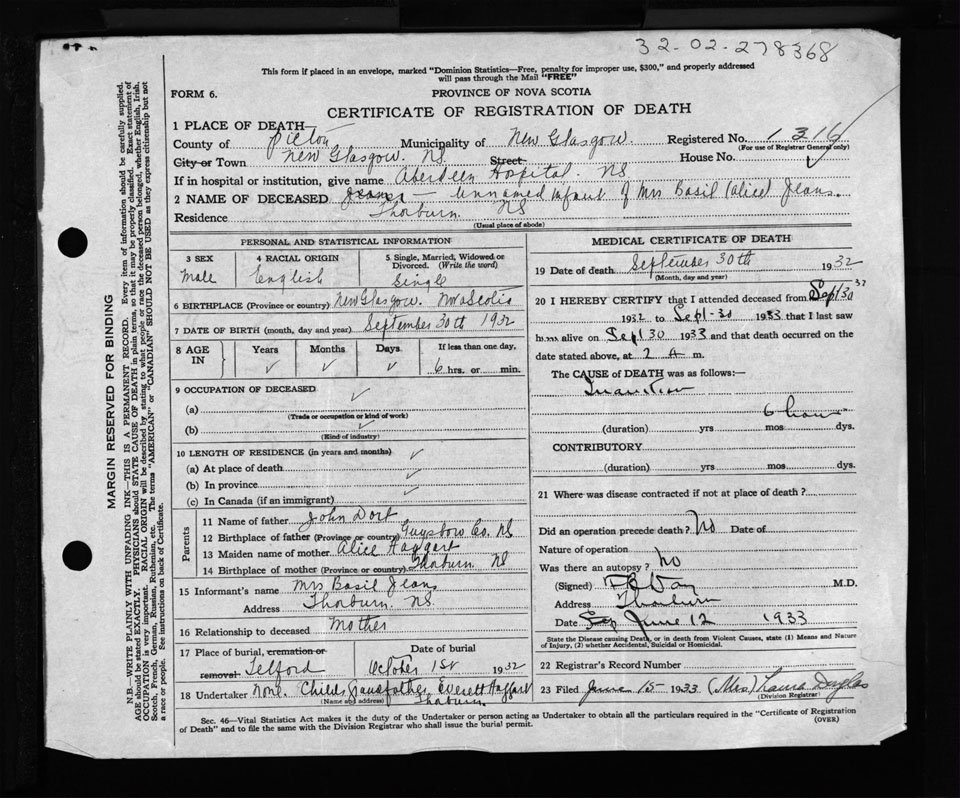 32-02-278368
This form if placed in an envelope, marked "Dominion Statistics—Free, penalty for improper use, $300," and properly addressed
will pass through the Mail "FREE"
FORM 6. PROVINCE OF NOVA SCOTIA
CERTIFICATE OF REGISTRATION OF DEATH
1 PLACE OF DEATH—
County of Pictou Municipality of New Glasgow. Registered No. 1316
(For use of Registrar General only)
City or Town New Glasgow. NS Street House No. ✓
If in hospital or institution, give name Aberdeen Hospital. NS
2 NAME OF DECEASED Jeans — Unnamed infant of Mrs Basil (Alice) Jeans.
Residence Thorburn. NS
(Usual place of abode)
PERSONAL AND STATISTICAL INFORMATION
3 SEX 4 RACIAL ORIGIN 5 Single, Married, Widowed or
Divorced. (Write the word)
Male English Single
6 BIRTHPLACE (Province or country) New Glasgow. Nova Scotia
7 DATE OF BIRTH (month, day and year) September 30th 1932
8 AGE IN Years ✓ Months ✓ Days ✓ If less than one day,
6 hrs. or min.
9 OCCUPATION OF DECEASED ✓
(a)
(Trade or occupation or kind of work)
(b) ✓
(Kind of industry)
10 LENGTH OF RESIDENCE (in years and months) ✓
(a) At place of death
(b) In province ✓
(c) In Canada (if an immigrant) ✓
Parents
11 Name of father John Dort
12 Birthplace of father (Province or country) Guysboro Co. NS
13 Maiden name of mother Alice Haggart
14 Birthplace of mother (Province or country) Thorburn. NS
15 Informant's name Mrs Basil Jeans
Address Thorburn. NS
16 Relationship to deceased Mother
17 Place of burial, cremation or Date of burial
removal Telford October 1st 1932
18 Undertaker None. Childs Grandfather, Everett Haggart
(Name and address) Thorburn.
MEDICAL CERTIFICATE OF DEATH
19 Date of death September 30th 1932
(Month, day and year)
20 I HEREBY CERTIFY that I attended deceased from Sept 30 32
1932 to Sept-30 1933 that I last saw
h alive on Sept 30 1933 and that death occurred on the
date stated above, at 2 A m.
The CAUSE of DEATH was as follows:—
Inanition
6 hours
(duration) yrs mos dys.
CONTRIBUTORY
(duration) yrs mos dys.
21 Where was disease contracted if not at place of death?
Did an operation precede death? No Date of
Nature of operation
Was there an autopsy? No
(Signed) M.D.
Address Thorburn
Date June 12 1933
State the Disease causing Death, or in death from Violent Causes, state (1) Means and Nature
of Injury, (2) whether Accidental, Suicidal or Homicidal.
22 Registrar's Record Number
23 Filed June 15- 1933 (Mrs) Laura Douglas
(Division Registrar)
Sec. 46—Vital Statistics Act makes it the duty of the Undertaker or person acting as Undertaker to obtain all the particulars required in the "Certificate of Registration
of Death" and to file the same with the Division Registrar who shall issue the burial permit. (OVER)
MARGIN RESERVED FOR BINDING
N.B.—WRITE PLAINLY WITH UNFADING INK—THIS IS A PERMANENT RECORD. Every item of information should be carefully supplied.
AGE should be stated EXACTLY. PHYSICIANS should STATE CAUSE OF DEATH in plain terms, so that it may be properly classified. Exact statement of
OCCUPATION is very important. RACIAL ORIGIN will be described by stating to what people or race the deceased person belonged, whether English, Irish,
Scotch, French, German, Russian, Ruthenian, etc. The terms "AMERICAN" or "CANADIAN" SHOULD NOT BE USED as they express citizenship but not
a race or people. See instructions on back of Certificate.